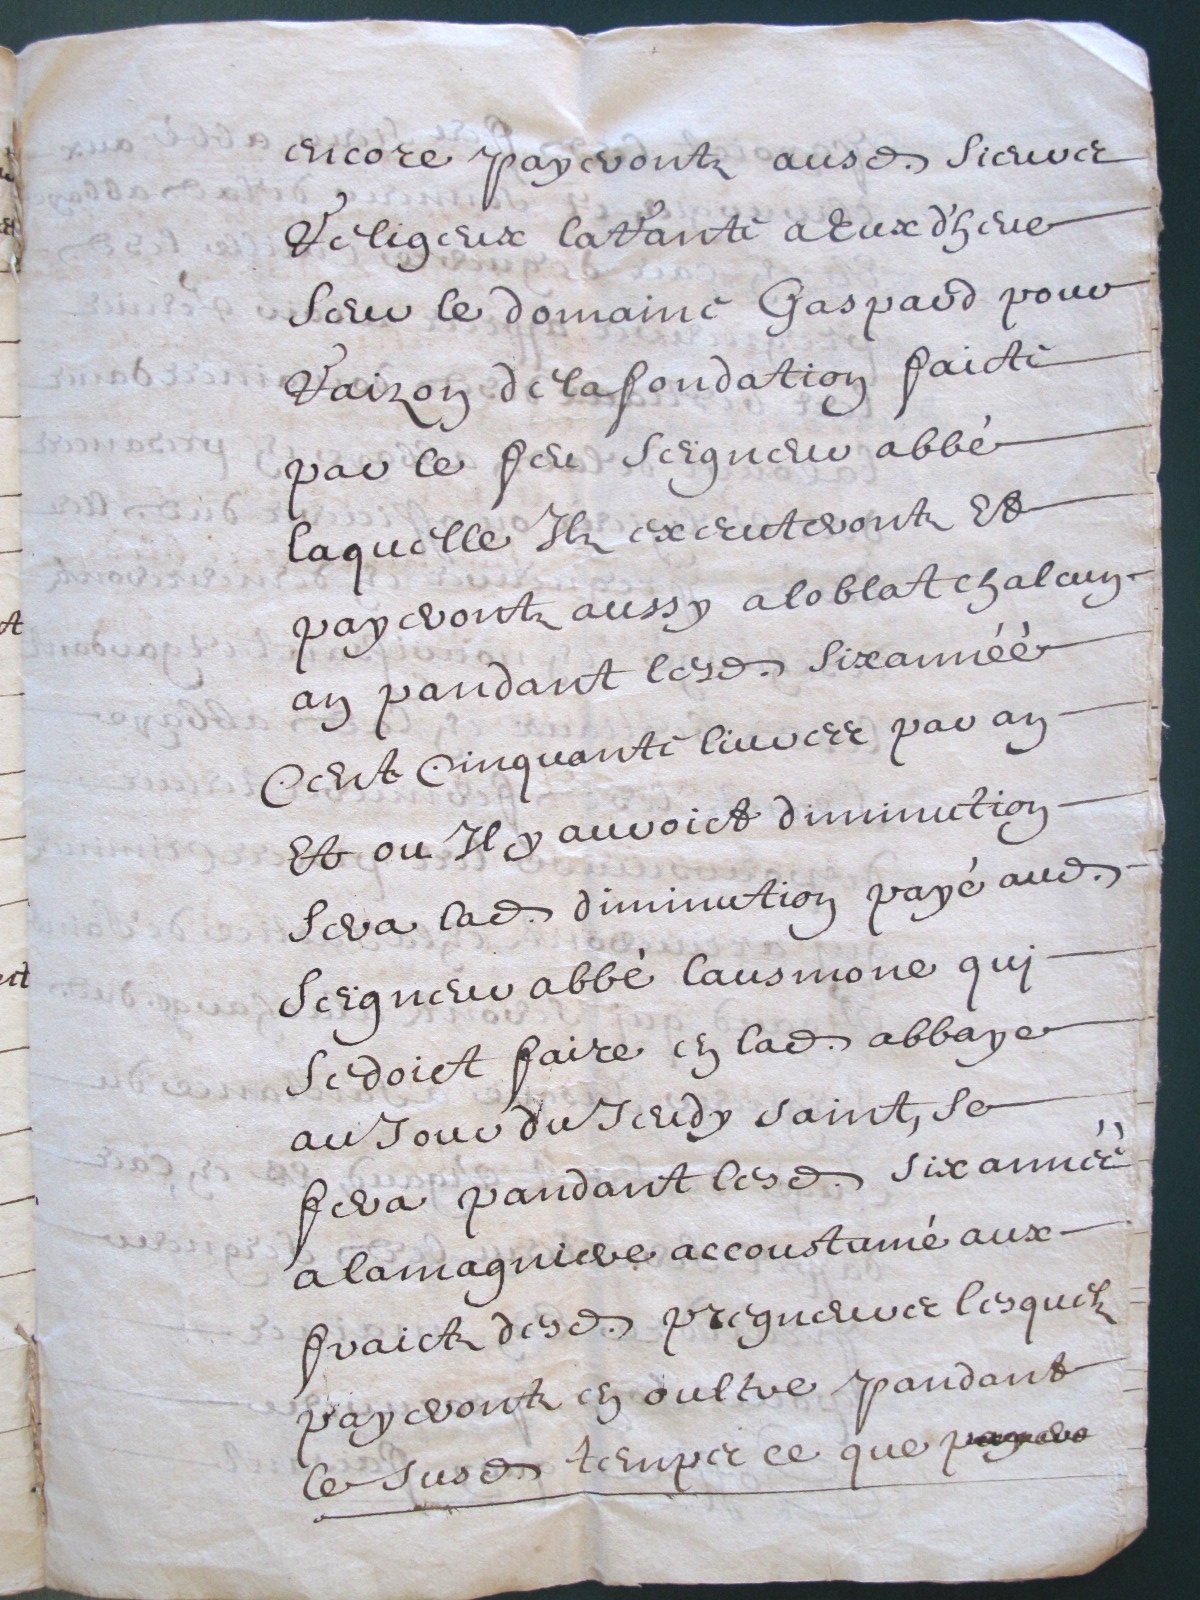 encore payeront ausd. sieurs
Religeux la Rante a Eux dheue
seur le domaine Gaspard pour
Raizon de la fondation faicte
par le feu seigneur abbé
laquelle Ilz executeront Et
payeront aussy a loblat chalcun
an pandant lesd. six année
Cent Cinquante liuvres par an
Et ou Il y auroict diminution
sera lad. diminution payé aud.
seigneur abbé lausmone quj
se doict faire en lad. abbaye
au Jour du Jeudy saint, se
fera pandant lesd. six année
a la magniere accoustumé aux
fraictz desd. pregneurs lesquelz
payeront en oultre pandant
le susd. temps ce que
ct